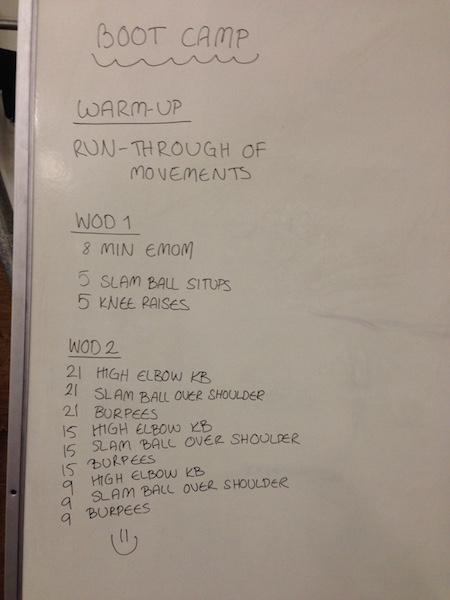 BOOT CAMP
WARM-UP
RUN-THROUGH OF
MOVEMENTS
WOD 1
8 MIN EMOM
5 SLAM BALL SITUPS
5 KNEE RAISES
WOD 2
21 HIGH ELBOW KB
21 SLAM BALL OVER SHOULDER
21 BURPEES
15 HIGH ELBOW KB
15 SLAM BALL OVER SHOULDER
15 BURPEES
9 HIGH ELBOW KB
9 SLAM BALL OVER SHOULDER
9 BURPEES